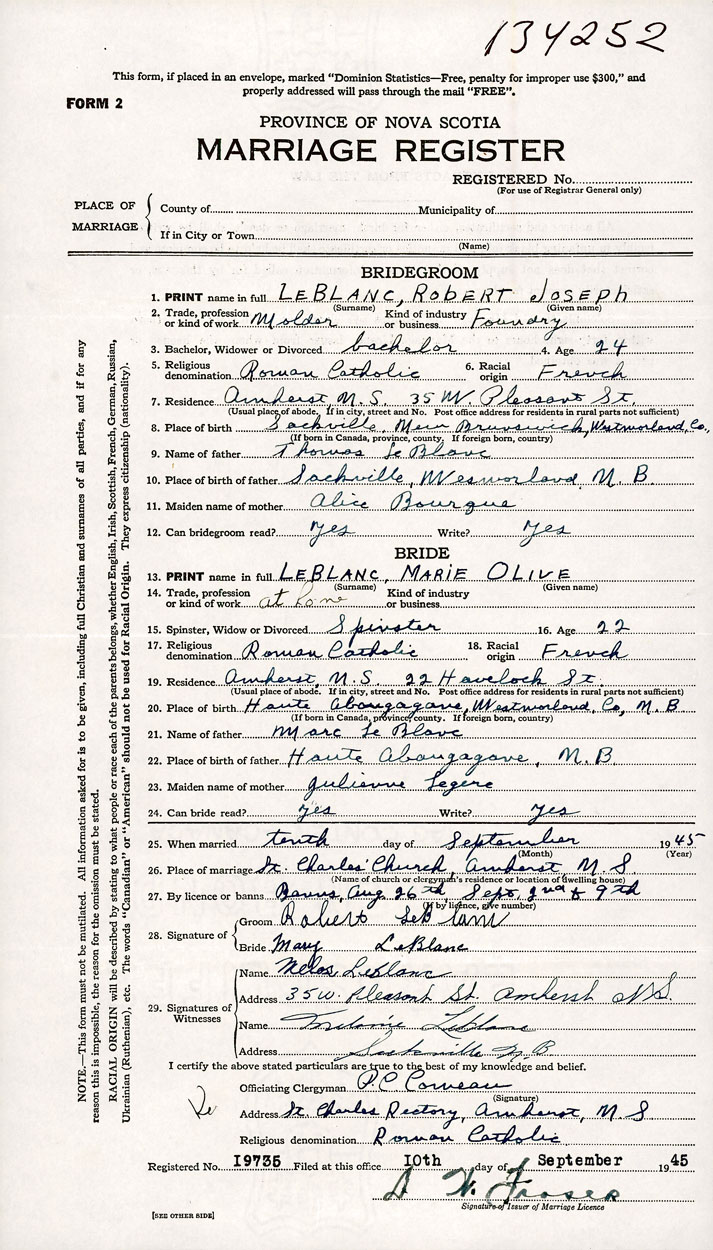 134252
This form, if placed in an envelope, marked "Dominion Statistics—Free, penalty for improper use $300," and
properly addressed will pass through the mail "FREE".
FORM 2
PROVINCE OF NOVA SCOTIA
MARRIAGE REGISTER
REGISTERED No.
(For use of Registrar General only)
PLACE OF MARRIAGE
County of Municipality of
If in City or Town
(Name)
BRIDEGROOM
1. PRINT name in full LEBLANC, ROBERT JOSEPH
(Surname) (Given name)
2. Trade, profession or kind of work Molder Kind of industry or business Foundry
3. Bachelor, Widower or Divorced bachelor 4. Age 24
5. Religious denomination Roman Catholic 6. Racial origin French
7. Residence Amherst, N.S. 35 W. Pleasant St.
(Usual place of abode. If in city, street and No. Post office address for residents in rural parts not sufficient)
8. Place of birth Sackville, New Brunswick, Westmorland, Co.,
(If born in Canada, province, county. If foreign born, country)
9. Name of father Thomas Le Blanc
10. Place of birth of father Sackville, Wesmorland N. B.
11. Maiden name of mother Alice Bourque
12. Can bridegroom read? Yes Write? Yes
BRIDE
13. PRINT name in full LEBLANC, MARIE OLIVE
(Surname) (Given name)
14. Trade, profession or kind of work at home Kind of industry or business
15. Spinster, Widow or Divorced Spinster 16. Age 22
17. Religious denomination Roman Catholic 18. Racial origin French
19. Residence Amherst, N.S. 22 Havelock St.
(Usual place of abode. If in city, street and No. Post office address for residents in rural parts not sufficient)
20. Place of birth Haute Aboujagane, Westmorland, Co, N. B
(If born in Canada, province, county. If foreign born, country)
21. Name of father Marc Le Blanc
22. Place of birth of father Haute Aboujagane, N.B.
23. Maiden name of mother Julienne Legere
24. Can bride read? Yes Write? Yes
25. When married tenth day of September 1945
(Month) (Year)
26. Place of marriage St. Charles' Church, Amherst N. S.
(Name of church or clergyman's residence or location of dwelling house)
27. By licence or banns Banns, Aug. 26th, Sept. 2nd & 9th
(If by licence, give number)
28. Signature of
Groom Robert LeBlanc
Bride Mary LeBlanc
29. Signatures of Witnesses
Name LeBlanc
Address 35 W. Pleasant St. Amherst N.S.
Name LeBlanc
Address Sackville N.B.
I certify the above stated particulars are true to the best of my knowledge and belief.
Officiating Clergyman P.C. Comeau
(Signature)
Address St. Charles Rectory, Amherst, N. S
Religious denomination Roman Catholic
Registered No. 19735 Filed at this office 10th day of September 1945
D. W. Fraser
Signature of Issuer of Marriage Licence
[SEE OTHER SIDE]
NOTE.—This form must not be mutilated. All information asked for is to be given, including full Christian and surnames of all parties, and if for any
reason this is impossible, the reason for the omission must be stated.
RACIAL ORIGIN will be described by stating to what people or race each of the parents belongs, whether English, Irish, Scottish, French, German, Russian,
Ukrainian (Ruthenian), etc. The words "Canadian" or "American" should not be used for Racial Origin. They express citizenship (nationality).